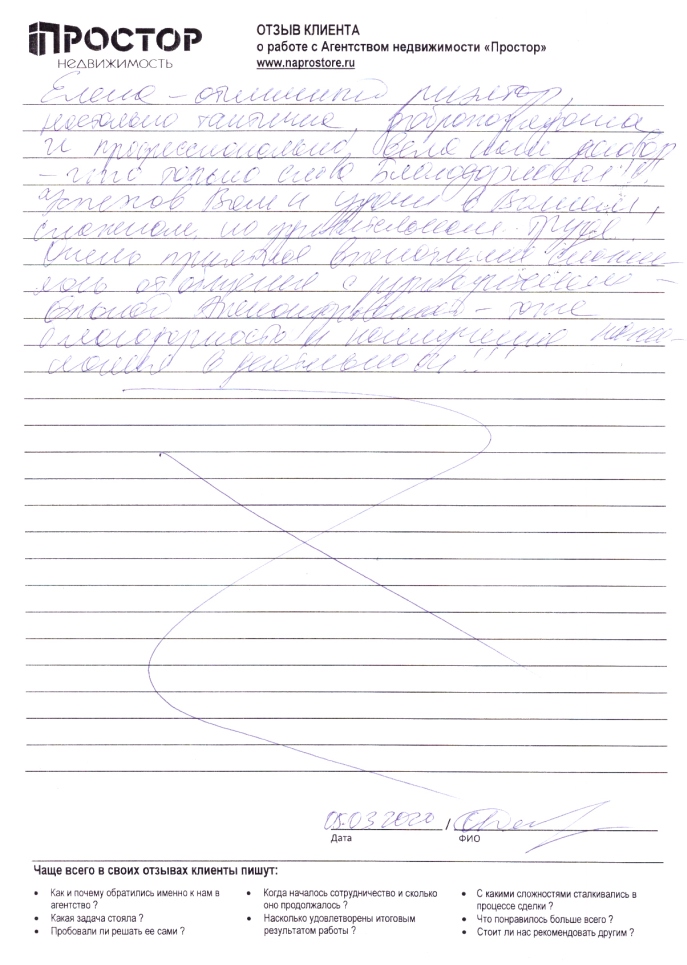 ПРОСТОР
НЕДВИЖИМОСТЬ
ОТЗЫВ КЛИЕНТА
о работе с Агентством недвижимости «Простор»
www.naprostore.ru
Елена – отличный риэлтор,
настолько тактична, добропорядочна
и профессионально вела наш договор
– что только слова благодарности!!!
Успехов Вам и удачи в Вашем,
сложном, но удивительном труде.
Очень приятное впечатление
от общения с руководителем –
– тоже
благодарность и наилучшие
в деятельности!!!
05.03.2020 /
Дата
ФИО
Чаще всего в своих отзывах клиенты пишут:
• Как и почему обратились именно к нам в
агентство ?
• Какая задача стояла ?
• Пробовали ли решать ее сами ?
• Когда началось сотрудничество и сколько
оно продолжалось ?
• Насколько удовлетворены итоговым
результатом работы ?
• С какими сложностями сталкивались в
процессе сделки ?
• Что понравилось больше всего ?
• Стоит ли нас рекомендовать другим ?